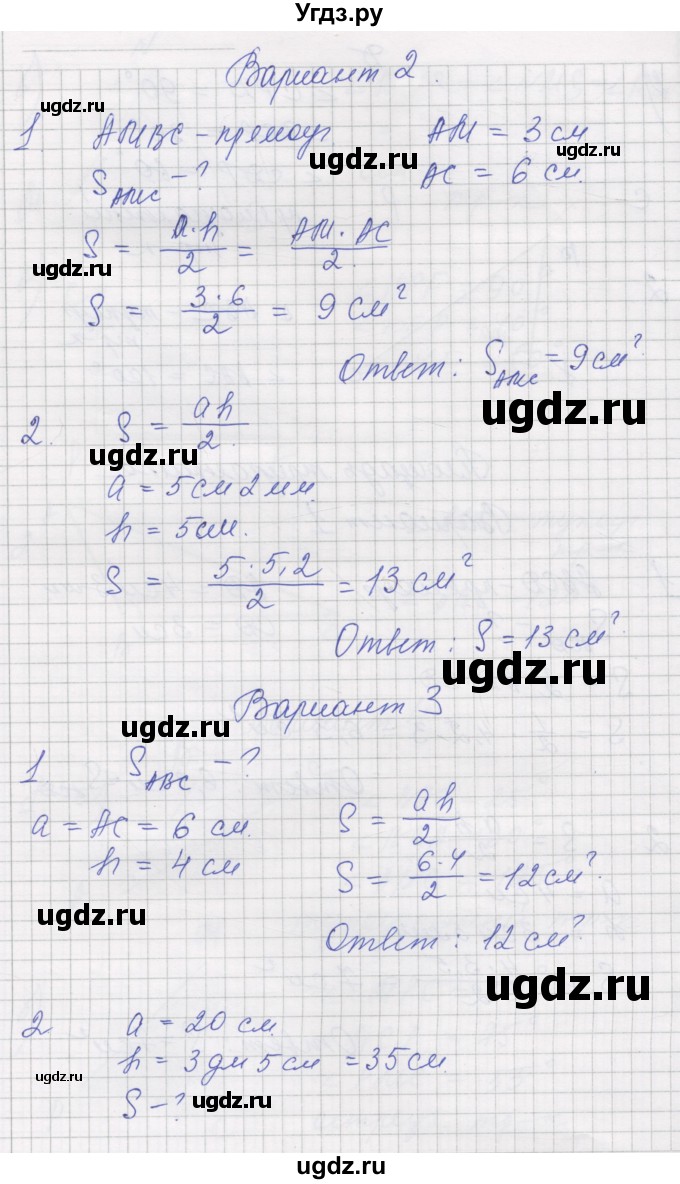 Угдз.ру
Вариант 2.
ugdz.ru
1 АМВС – прямоуг. АМ = 3 см
ugdz.ru ugdz.ru
S АМС – ? АС = 6 см.
S = a·h / 2 = АМ · АС / 2.
ugdz.ru
S = 3·6 / 2 = 9 см²
Ответ: S АМС = 9 см².
ugdz.ru
2. S = ah / 2.
ugdz.ru
a = 5 см 2 мм.
h = 5 см.
S = 5·5,2 / 2 = 13 см²
Ответ: S = 13 см².
ugdz.ru
Вариант 3
ugdz.ru
1. S АВС – ?
a = АС = 6 см. S = ah / 2
h = 4 см S = 6·4 / 2 = 12 см².
ugdz.ru
Ответ: 12 см².
ugdz.ru
2 a = 20 см.
h = 3 дм 5 см = 35 см.
ugdz.ru
S – ? ugdz.ru
ugdz.ru